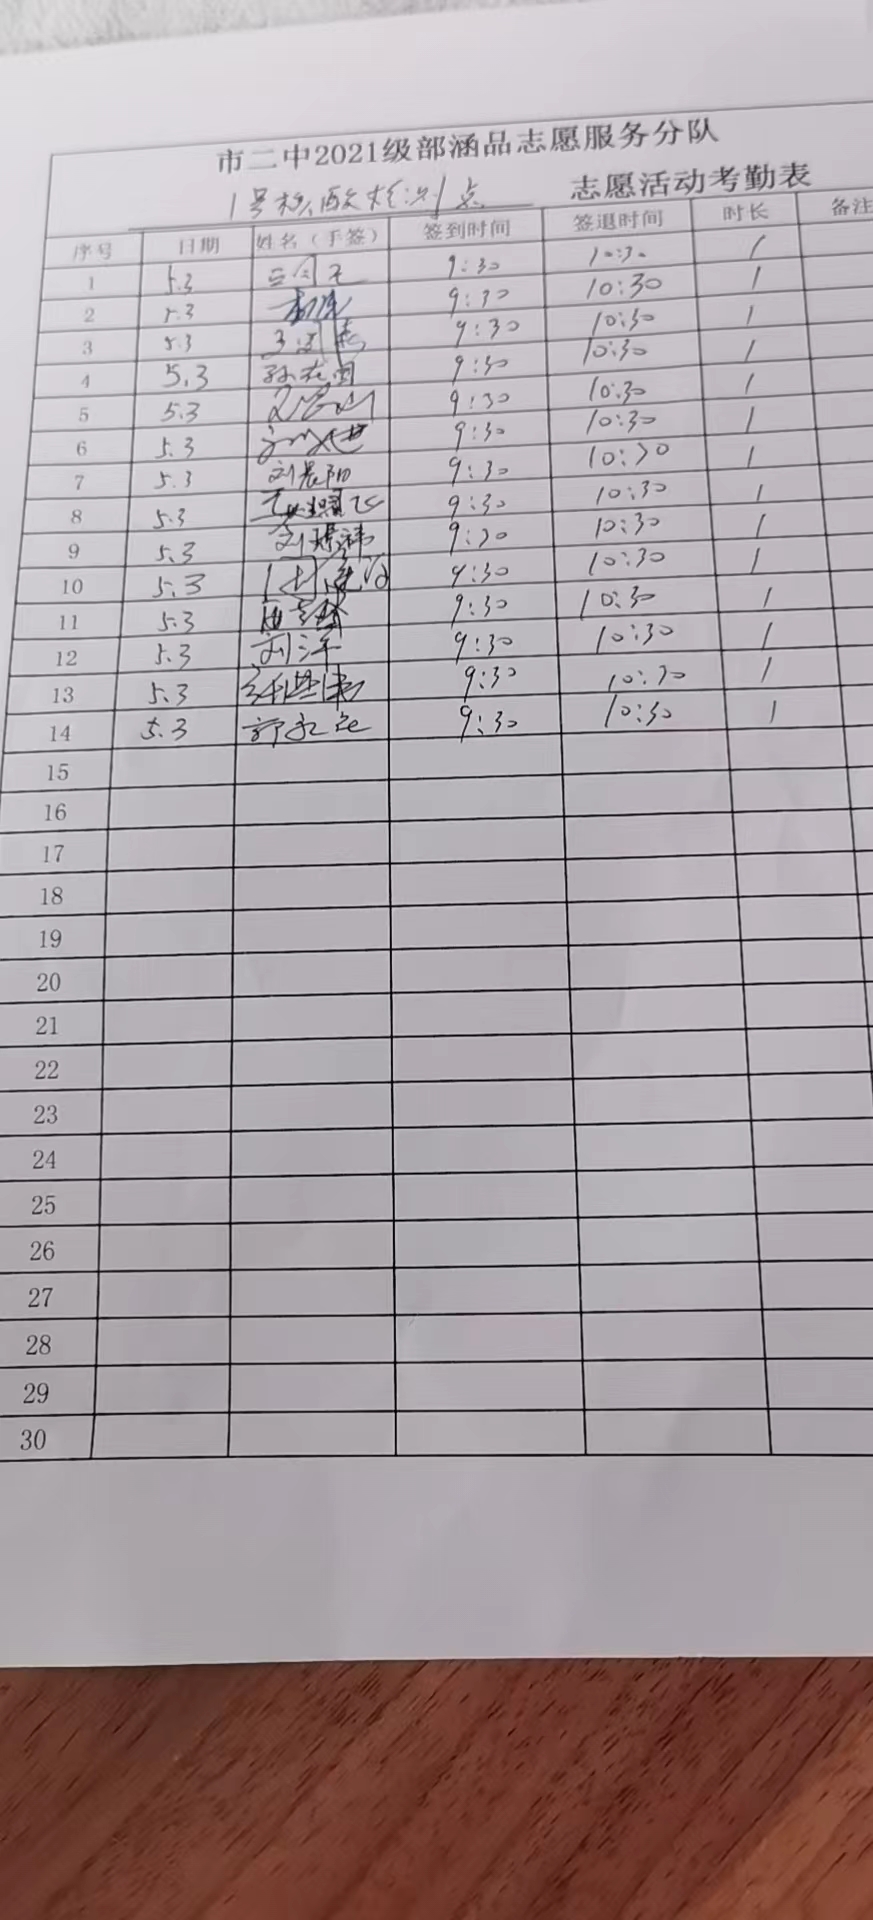 市二中2021级部涵品志愿服务分队
1号核酸检测点 志愿活动考勤表
序号 日期 姓名（手签） 签到时间 签退时间 时长 备注
1 5.3 9:30 10:30 1
2 5.3 9:30 10:30 1
3 5.3 9:30 10:30 1
4 5.3 9:30 10:30 1
5 5.3 9:30 10:30 1
6 5.3 9:30 10:30 1
7 5.3 刘晨阳 9:30 10:30 1
8 5.3 9:30 10:30 1
9 5.3 9:30 10:30 1
10 5.3 9:30 10:30 1
11 5.3 9:30 10:30 1
12 5.3 刘洋 9:30 10:30 1
13 5.3 9:30 10:30 1
14 5.3 9:30 10:30 1
15
16
17
18
19
20
21
22
23
24
25
26
27
28
29
30